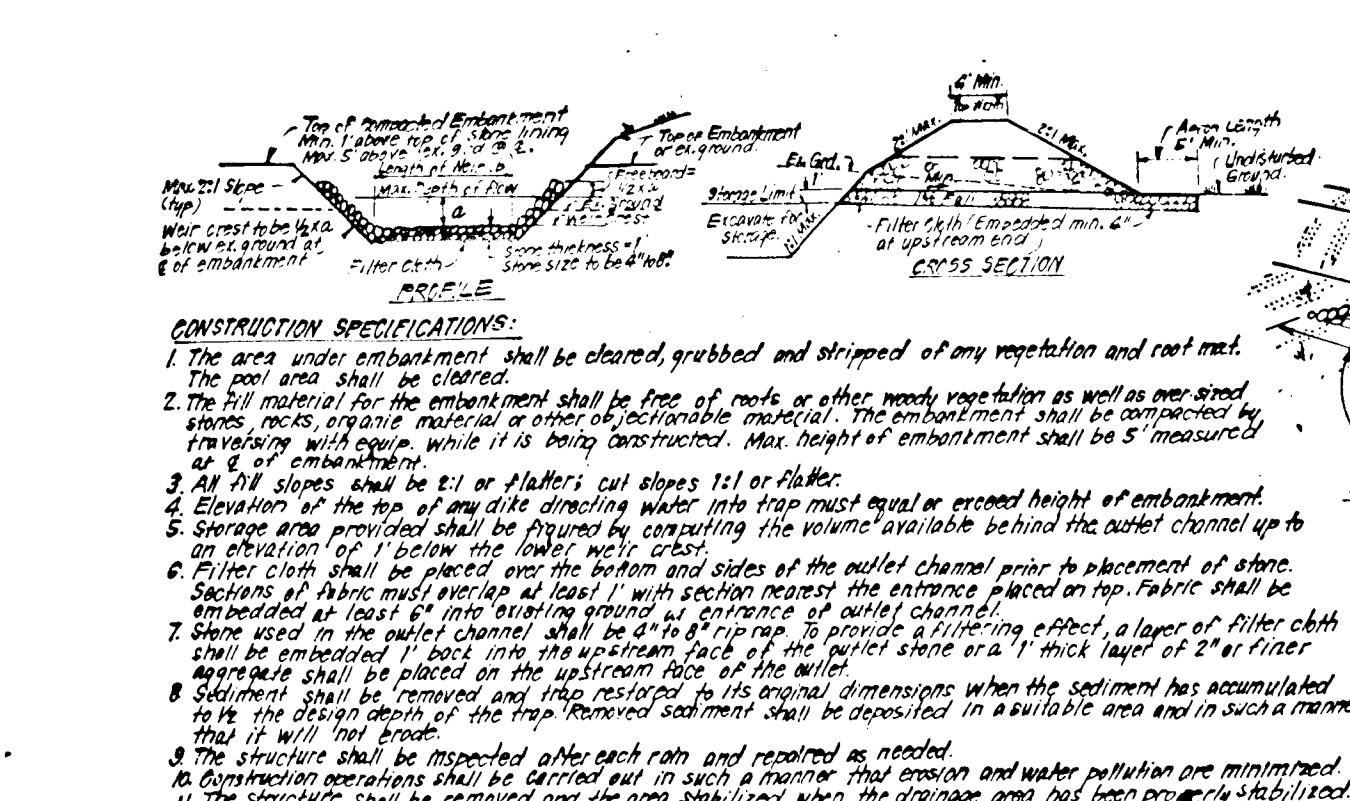 Top of Compacted Embankment
Min. 1' above top of stone lining
Max. 5' above ex. grd @ ℄.
Length of Weir b
Max. Depth of flow
a
Max 2:1 Slope
(typ)
Weir crest to be ½xa
below ex. ground at
℄ of embankment
Filter Cloth
Stone thickness = 1'
Stone size to be 4" to 8"
Top of Embankment
or ex. ground.
Freeboard =
Ex. Ground
Weir Crest
PROFILE
Min.
Top Width
2:1 Max.
2:1 Max.
Apron Length
5' Min.
Undisturbed
Ground.
Ex. Grd.
1'
Storage Limit
Excavate for
Storage.
1:1 Max.
Filter Cloth (Embedded min.
at upstream end)
CROSS SECTION
CONSTRUCTION SPECIFICATIONS:
1. The area under embankment shall be cleared, grubbed and stripped of any vegetation and root mat.
The pool area shall be cleared.
2. The fill material for the embankment shall be free of roots or other woody vegetation as well as over-sized
stones, rocks, organic material or other objectionable material. The embankment shall be compacted by
traversing with equip. while it is being constructed. Max. height of embankment shall be 5' measured
at ℄ of embankment.
3. All fill slopes shall be 2:1 or flatter; cut slopes 1:1 or flatter.
4. Elevation of the top of any dike directing water into trap must equal or exceed height of embankment.
5. Storage area provided shall be figured by computing the volume available behind the outlet channel up to
an elevation of 1' below the lower weir crest.
6. Filter cloth shall be placed over the bottom and sides of the outlet channel prior to placement of stone.
Sections of fabric must overlap at least 1' with section nearest the entrance placed on top. Fabric shall be
embedded at least 6" into existing ground at entrance of outlet channel.
7. Stone used in the outlet channel shall be 4" to 8" riprap. To provide a filtering effect, a layer of filter cloth
shall be embedded 1' back into the upstream face of the outlet stone or a 1' thick layer of 2" or finer
aggregate shall be placed on the upstream face of the outlet.
8 Sediment shall be removed and trap restored to its original dimensions when the sediment has accumulated
to ½ the design depth of the trap. Removed sediment shall be deposited in a suitable area and in such a manne
that it will not erode.
9. The structure shall be inspected after each rain and repaired as needed.
10. Construction operations shall be carried out in such a manner that erosion and water pollution are minimized.
11. The structure shall be removed and the area stabilized when the drainage area has been properly stabilized.